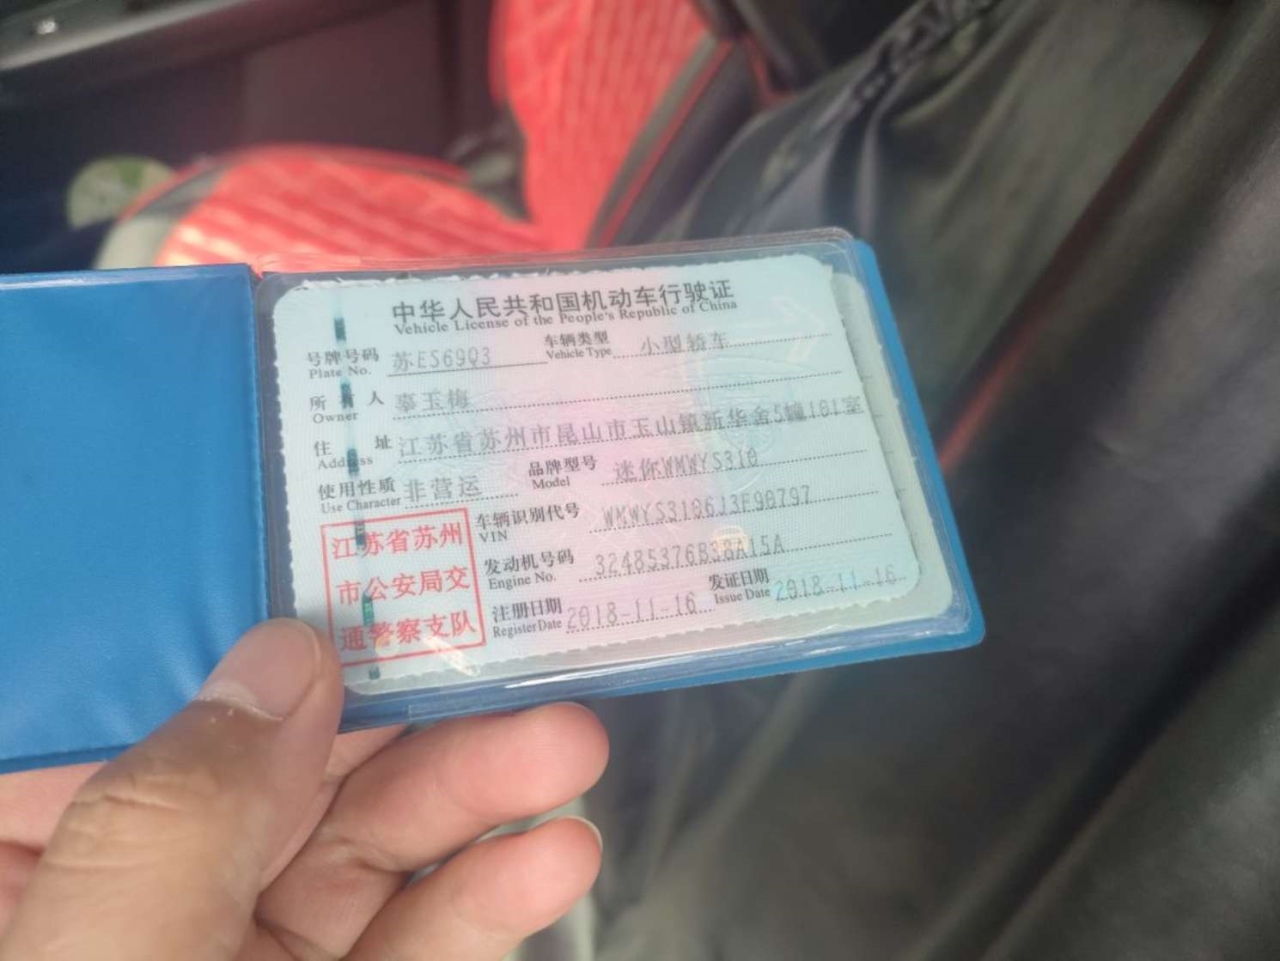 中华人民共和国机动车行驶证
Vehicle License of the People's Republic of China
号牌号码 苏ES69Q3 车辆类型 小型轿车
Plate No. Vehicle Type
所有人 辜玉梅
Owner
住址 江苏省苏州市昆山市玉山镇新华舍5幢101室
Address
使用性质 非营运 品牌型号 迷你WMWYS310
Use Character Model
车辆识别代号 WMWYS3106J3F90797
VIN
发动机号码 32485376B38A15A
Engine No.
注册日期 2018-11-16 发证日期 2018-11-16
Register Date Issue Date
江苏省苏州
市公安局交
通警察支队